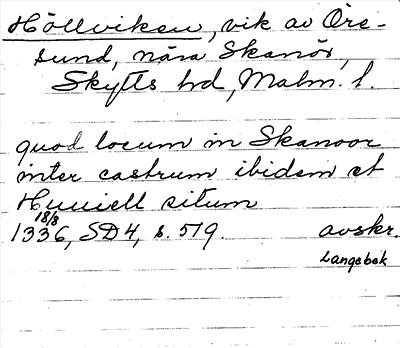 Höllviken, vik av Öre-
sund, nära Skanör,
Skytts hd, Malm. l.
quod locum in Skanoor
inter castrum ibidem et
Huuiell situm
18/8
1336, SD 4, s. 519. avskr.
Langebek